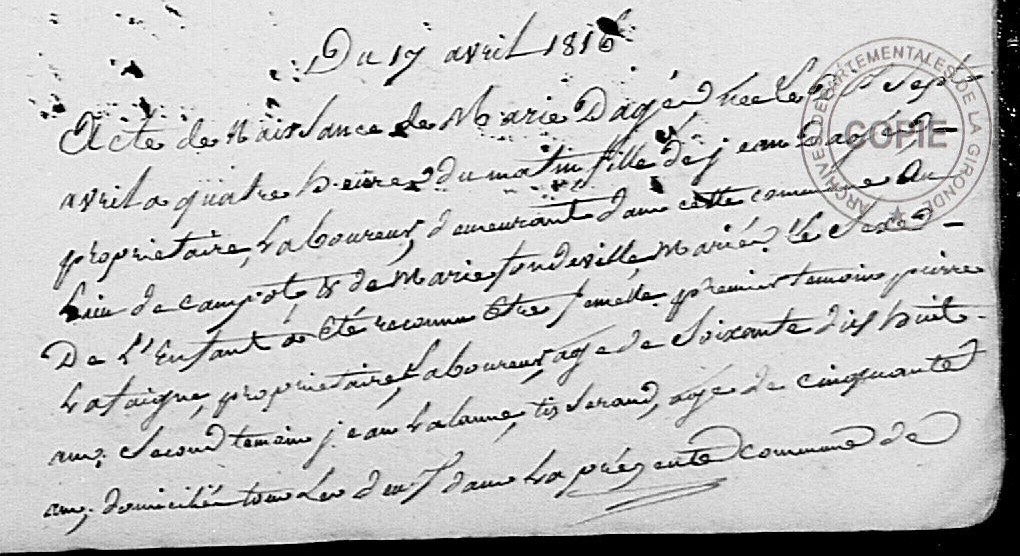 Du 17 avril 1816
Acte de Naissance de Marie Dagé Née le Dix sept
avril a quatre heures du matin fille de jean Dagés
proprietaire, Laboureur, demeurant dans cette commune au
Lieu de campot, & de Marie fondeville Mariés. Le Sexe
De L'Enfant a Eté reconnu Etre femelle. premier temoin pierre
Lataigne, proprietaire, Laboureur, agé de Soixante dix huit
ans; Second temoin jean Lalanne, tisserand, agé de cinquante
ans; domiciliés tous Les deux dans La présente commune de
ARCHIVES DEPARTEMENTALES DE LA GIRONDE
COPIE